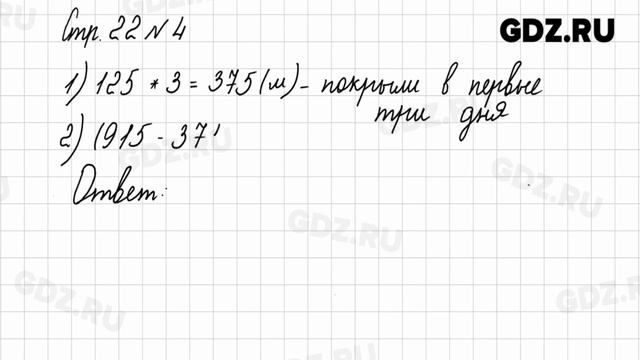 GDZ.RU
Стр. 22 № 4
1) 125 * 3 = 375 (м) - покрыли в первые
три дня
2) (915 - 37
Ответ:
GDZ.RU
GDZ.RU
GDZ.RU
GDZ.RU